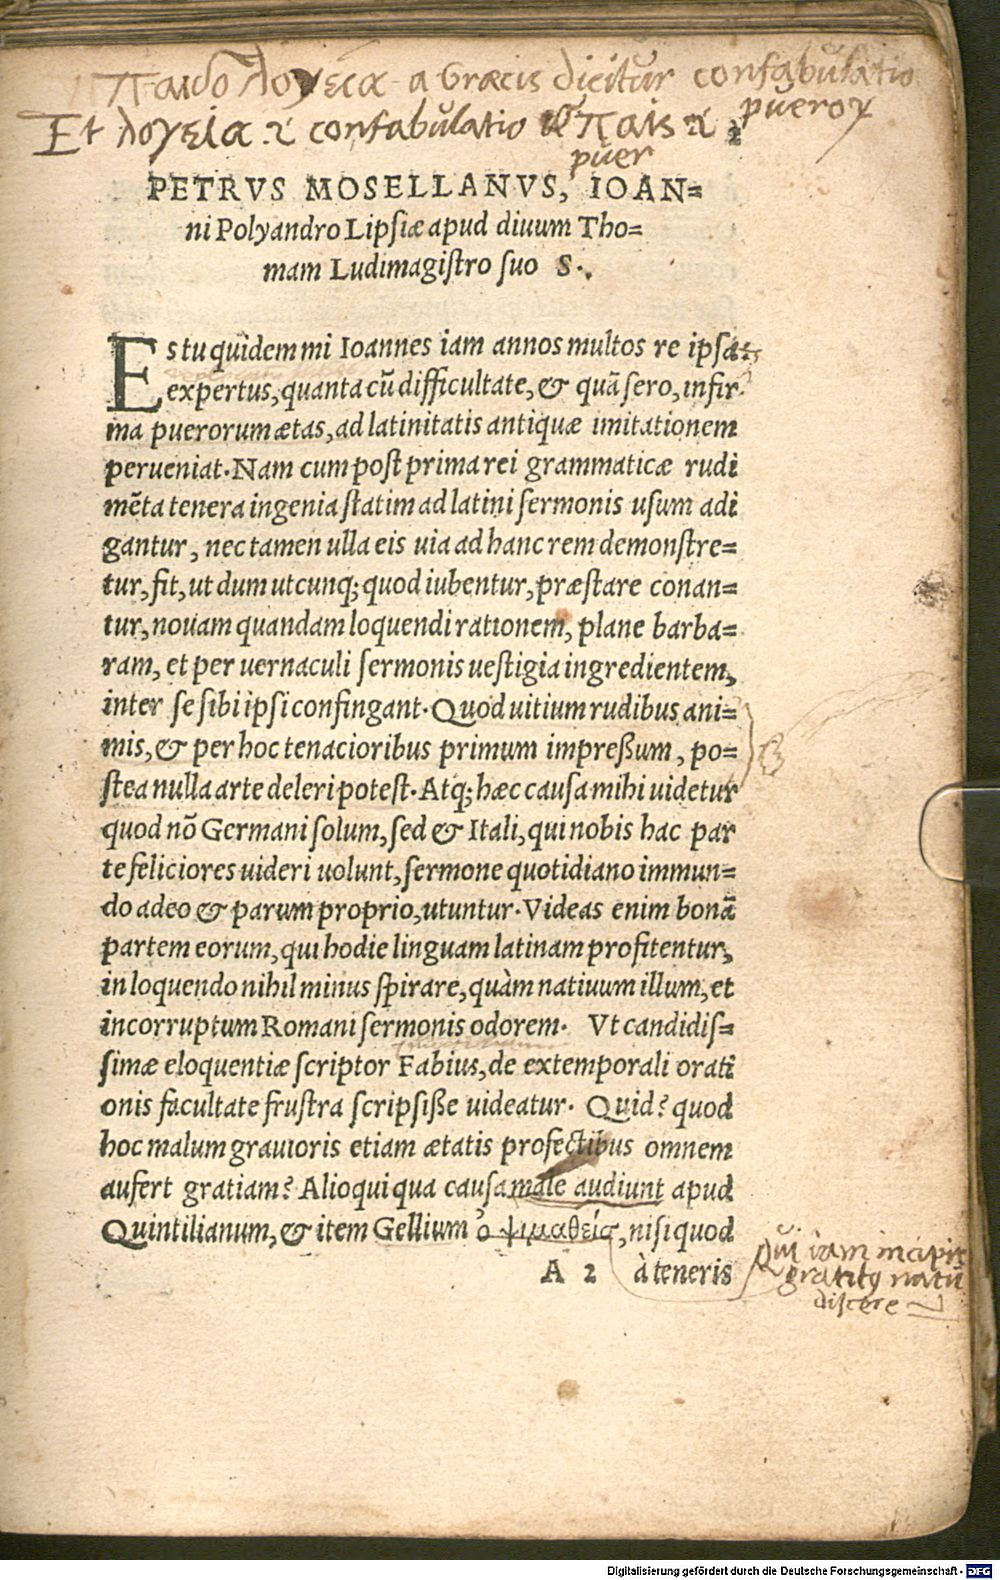 Παιδολογεία a Græcis dicitur confabulatio
pueroꝝ
Et λογεία .i. confabulatio παις .i.
puer
PETRVS MOSELLANVS, IOAN=
ni Polyandro Lipsiæ apud diuum Tho=
mam Ludimagiſtro ſuo S.
Es tu quidem mi Ioannes iam annos multos re ipſa
expertus, quanta cū difficultate, & quā ſero, infir
ma puerorum ætas, ad latinitatis antiquæ imitationem
perueniat. Nam cum poſt prima rei grammaticæ rudi
mēta tenera ingenia ſtatim ad latini ſermonis uſum adi
gantur, nec tamen ulla eis uia ad hanc rem demonſtre=
tur, fit, ut dum utcunq; quod iubentur, præſtare conan=
tur, nouam quandam loquendi rationem, plane barba=
ram, et per uernaculi ſermonis ueſtigia ingredientem,
inter ſe ſibi ipſi confingant. Quod uitium rudibus ani=
mis, & per hoc tenacioribus primum impreßum, po=
ſtea nulla arte deleri poteſt. Atq; hæc cauſa mihi uidetur
quod nō Germani ſolum, ſed & Itali, qui nobis hac par
te feliciores uideri uolunt, ſermone quotidiano immun=
do adeo & parum proprio, utuntur. Videas enim bonā
partem eorum, qui hodie linguam latinam profitentur,
in loquendo nihil minus ſpirare, quàm natiuum illum, et
incorruptum Romani ſermonis odorem. Vt candidiſ=
ſimæ eloquentiæ ſcriptor Fabius, de extemporali orati
onis facultate fruſtra ſcripſiße uideatur. Quid? quod
hoc malum grauioris etiam ætatis profectibus omnem
aufert gratiam? Alioqui qua cauſa male audiunt apud
Quintilianum, & item Gellium ὀψιμαθείς, niſi quod
A 2 à teneris
Qui iam incipit
natu
diſcere
Digitalisierung gefördert durch die Deutsche Forschungsgemeinschaft - DFG